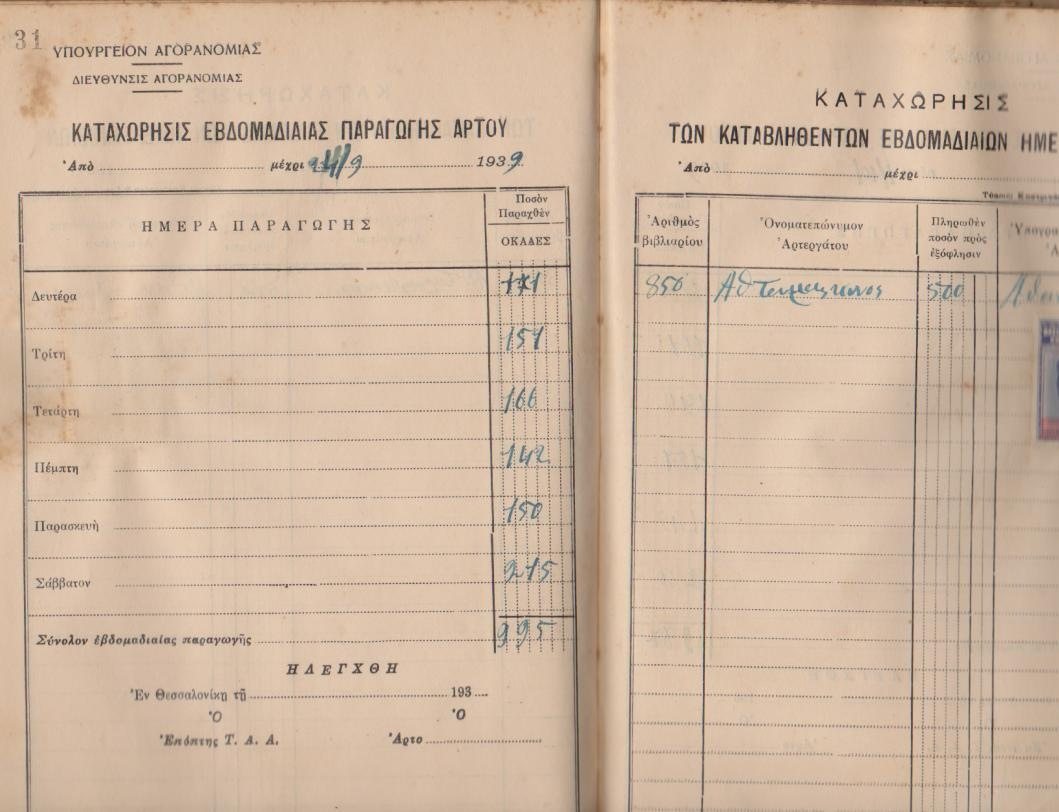 31
ΥΠΟΥΡΓΕΙΟΝ ΑΓΟΡΑΝΟΜΙΑΣ
ΔΙΕΥΘΥΝΣΙΣ ΑΓΟΡΑΝΟΜΙΑΣ
ΚΑΤΑΧΩΡΗΣΙΣ ΕΒΔΟΜΑΔΙΑΙΑΣ ΠΑΡΑΓΩΓΗΣ ΑΡΤΟΥ
Ἀπὸ μέχρι 24/9 1939
ΗΜΕΡΑ ΠΑΡΑΓΩΓΗΣ
Ποσὸν
Παραχθὲν
ΟΚΑΔΕΣ
Δευτέρα 171
Τρίτη 151
Τετάρτη 166
Πέμπτη 142
Παρασκευὴ 150
Σάββατον 215
Σύνολον ἑβδομαδιαίας παραγωγῆς 995
ΗΛΕΓΧΘΗ
Ἐν Θεσσαλονίκῃ τῇ 193
Ὁ Ὁ
Ἐπόπτης Τ. Α. Α. Ἀρτο
ΚΑΤΑΧΩΡΗΣΙΣ
ΤΩΝ ΚΑΤΑΒΛΗΘΕΝΤΩΝ ΕΒΔΟΜΑΔΙΑΙΩΝ ΗΜΕ
Ἀπὸ μέχρι
Ἀριθμὸς
βιβλιαρίου
Ὀνοματεπώνυμον
Ἀρτεργάτου
Πληρωθὲν
ποσὸν πρὸς
ἐξόφλησιν
Ὑπογρα
Ἀ
850 Αθ 500 Αθαν